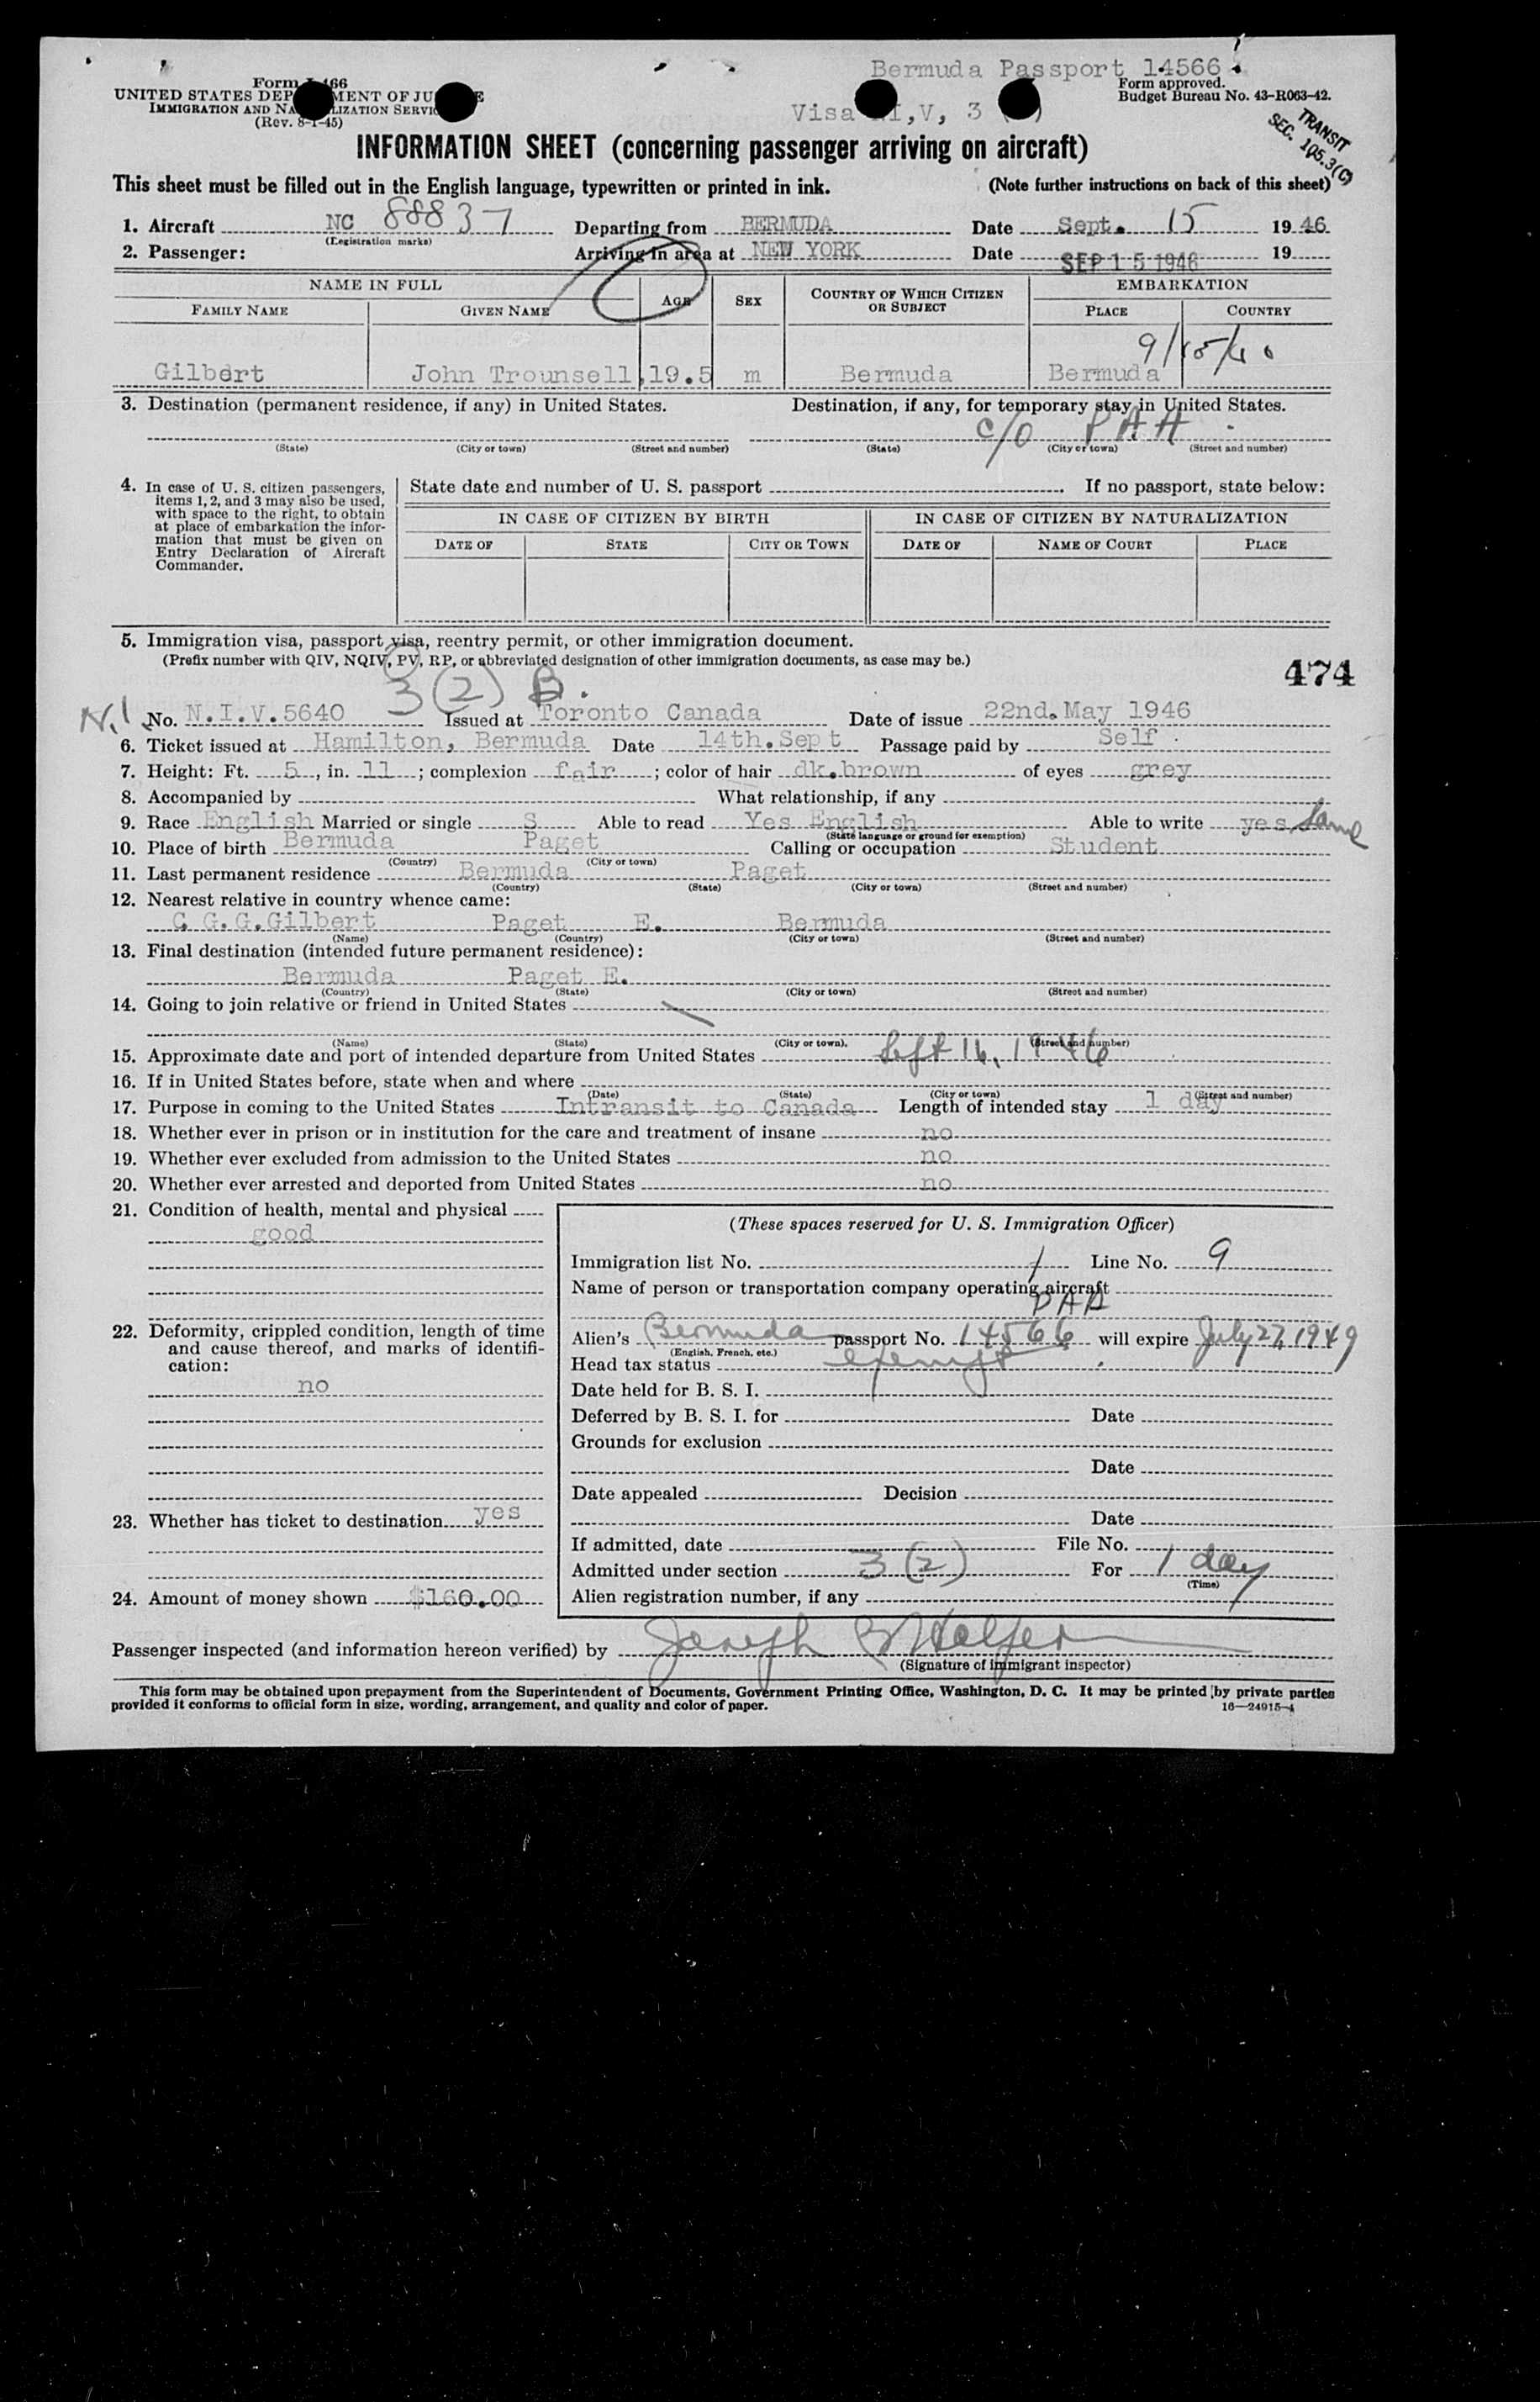 Bermuda Passport 14566
Form I-466
UNITED STATES DEPARTMENT OF JUSTICE
IMMIGRATION AND NATURALIZATION SERVICE
(Rev. 8-1-45)
Form approved.
Budget Bureau No. 43-R063-42.
Visa NI,V, 3
TRANSIT
SEC. 105.3(C)
INFORMATION SHEET (concerning passenger arriving on aircraft)
This sheet must be filled out in the English language, typewritten or printed in ink. (Note further instructions on back of this sheet)
1. Aircraft NC 88837 Departing from BERMUDA Date Sept. 15 1946
(Registration marks)
2. Passenger: Arriving in area at NEW YORK Date SEP 15 1946 19
NAME IN FULL AGE SEX COUNTRY OF WHICH CITIZEN OR SUBJECT EMBARKATION
FAMILY NAME GIVEN NAME PLACE COUNTRY
9/15/46
Gilbert John Trounsell, 19.5 m Bermuda Bermuda
3. Destination (permanent residence, if any) in United States. Destination, if any, for temporary stay in United States.
c/o PAA
(State) (City or town) (Street and number) (State) (City or town) (Street and number)
4. In case of U. S. citizen passengers, items 1, 2, and 3 may also be used, with space to the right, to obtain at place of embarkation the information that must be given on Entry Declaration of Aircraft Commander.
State date and number of U. S. passport . If no passport, state below:
IN CASE OF CITIZEN BY BIRTH IN CASE OF CITIZEN BY NATURALIZATION
DATE OF STATE CITY OR TOWN DATE OF NAME OF COURT PLACE
5. Immigration visa, passport visa, reentry permit, or other immigration document.
(Prefix number with QIV, NQIV, PV, RP, or abbreviated designation of other immigration documents, as case may be.)
474
3 (2) B.
N.I. No. N.I.V.5640 Issued at Toronto Canada Date of issue 22nd.May 1946
6. Ticket issued at Hamilton, Bermuda Date 14th.Sept Passage paid by Self
7. Height: Ft. 5, in. 11; complexion fair; color of hair dk.brown of eyes grey
8. Accompanied by What relationship, if any
9. Race English Married or single S Able to read Yes English Able to write yes Same
(State language or ground for exemption)
10. Place of birth Bermuda Paget Calling or occupation Student
(Country) (City or town)
11. Last permanent residence Bermuda Paget
(Country) (State) (City or town) (Street and number)
12. Nearest relative in country whence came:
C.G.G.Gilbert Paget E. Bermuda
(Name) (Country) (City or town) (Street and number)
13. Final destination (intended future permanent residence):
Bermuda Paget E.
(Country) (State) (City or town) (Street and number)
14. Going to join relative or friend in United States
(Name) (State) (City or town) (Street and number)
15. Approximate date and port of intended departure from United States Sept 16, 1946
16. If in United States before, state when and where
(Date) (State) (City or town) (Street and number)
17. Purpose in coming to the United States Intransit to Canada Length of intended stay 1 day
18. Whether ever in prison or in institution for the care and treatment of insane no
19. Whether ever excluded from admission to the United States no
20. Whether ever arrested and deported from United States no
21. Condition of health, mental and physical
good
22. Deformity, crippled condition, length of time and cause thereof, and marks of identification:
no
23. Whether has ticket to destination yes
24. Amount of money shown $160.00
(These spaces reserved for U. S. Immigration Officer)
Immigration list No. 1 Line No. 9
Name of person or transportation company operating aircraft
PAA
Alien's Bermuda passport No. 14566 will expire July 27, 1949
(English, French, etc.)
Head tax status exempt
Date held for B. S. I.
Deferred by B. S. I. for Date
Grounds for exclusion
Date
Date appealed Decision
Date
If admitted, date File No.
Admitted under section 3 (2) For 1 day
(Time)
Alien registration number, if any
Passenger inspected (and information hereon verified) by Joseph
(Signature of immigrant inspector)
This form may be obtained upon prepayment from the Superintendent of Documents, Government Printing Office, Washington, D. C. It may be printed by private parties
provided it conforms to official form in size, wording, arrangement, and quality and color of paper. 16—24915-4